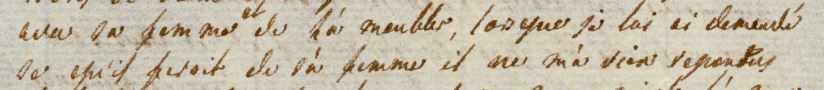 avec sa femme et de sa meubles, lorsque je lui ai demandé
se qu'il feroit de sa femme il ne m'a rien repondus